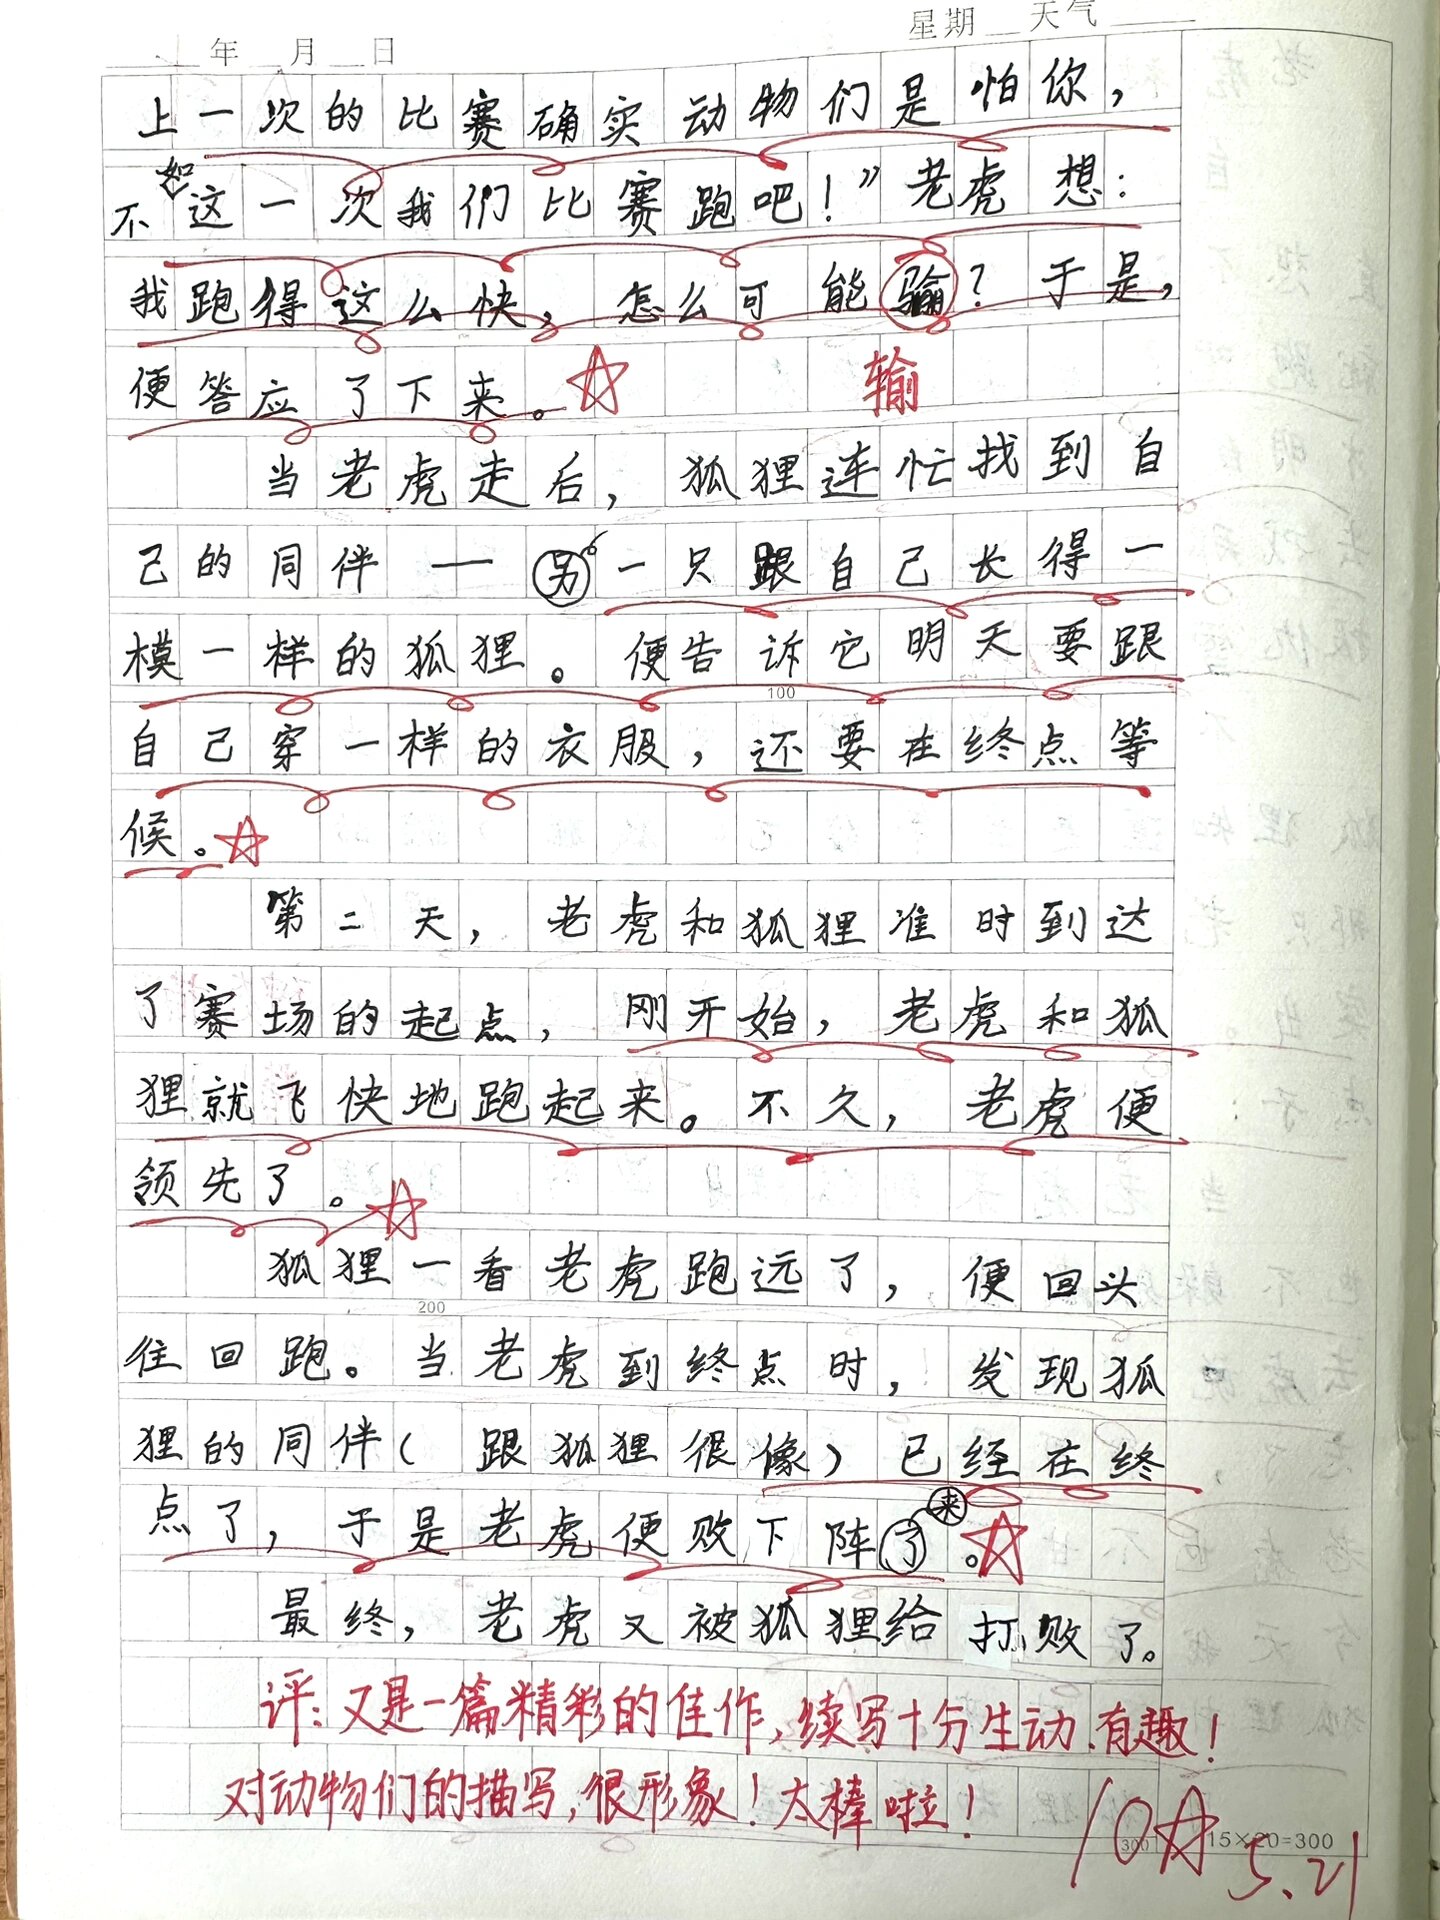 年 月 日 星期 天气
上一次的比赛确实动物们是怕你，
不如这一次我们比赛跑吧！”老虎想：
我跑得这么快，怎么可能骗？于是，
输
便答应了下来。
当老虎走后，狐狸连忙找到自
己的同伴一另一只跟自己长得一
模一样的狐狸。便告诉它明天要跟
100
自己穿一样的衣服，还要在终点等
候。
第二天，老虎和狐狸准时到达
了赛场的起点，刚开始，老虎和狐
狸就飞快地跑起来。不久，老虎便
领先了。
狐狸一看老虎跑远了，便回头
200
往回跑。当老虎到终点时，发现狐
狸的同伴（跟狐狸很像）已经在终
点了，于是老虎便败下阵了来。
最终，老虎又被狐狸给打败了。
评：又是一篇精彩的佳作，续写十分生动、有趣！
对动物们的描写，很形象！太棒啦！
10☆
300 15×20=300
5.21